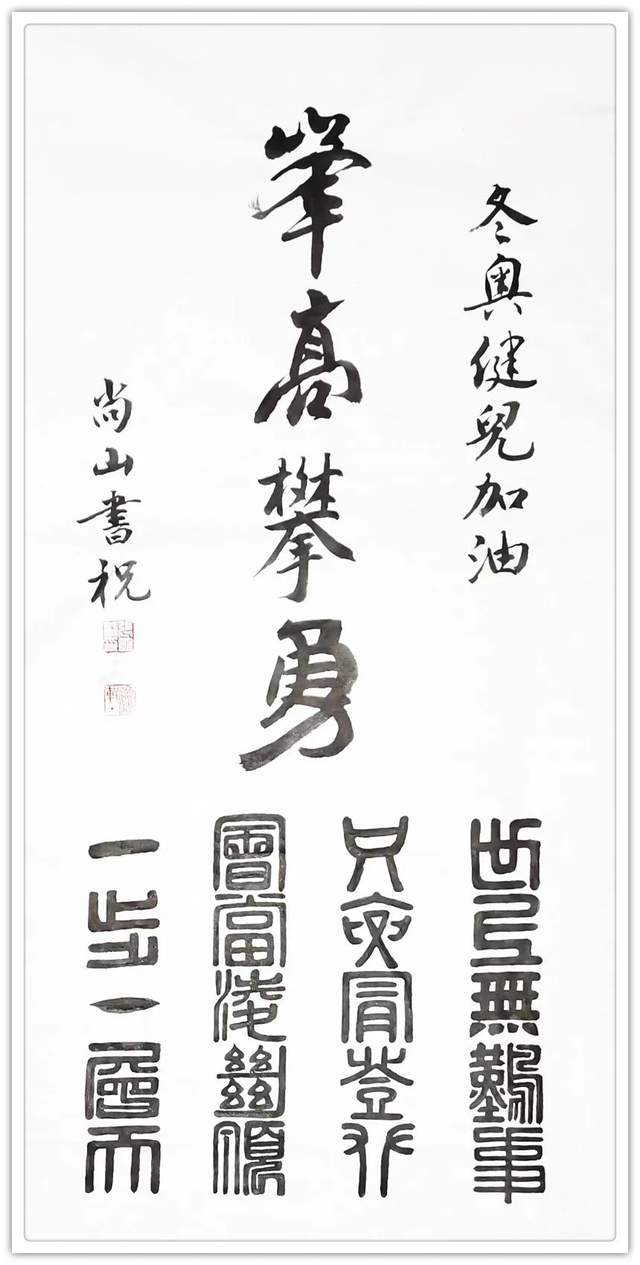 冬奧健兒加油
峯高攀勇
尚山書祝
世上無難事
只要肯登攀
會當凌絕頂
一步一層天